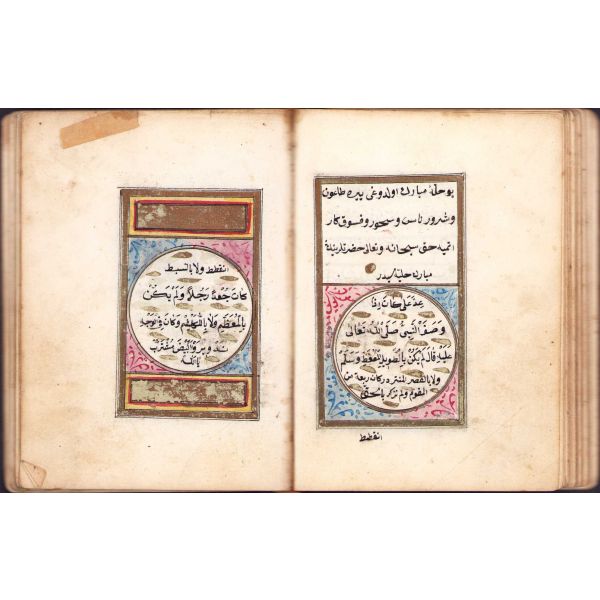 بو حلیۀ مبارك اولدوغی یره طاعون
و شرور ناس و سحور و فسوق كار
اتمیه حق سبحانه و تعالی حضرتلرینك
مبارك حلیه سیدر
عن علی كان اذا
وصف النبی صلی الله تعالی
علیه قال لم یكن بالطویل الممغط و سلم
ولا بالقصیر المتردد وكان ربعة من
القوم ولم یكن بالجعد
القطط
القطط ولا بالسبط
كان جعدًا رجلاً ولم یكن
بالمطهم ولا بالمكلثم وكان فی الوجه
تدویر ابیض مشرب